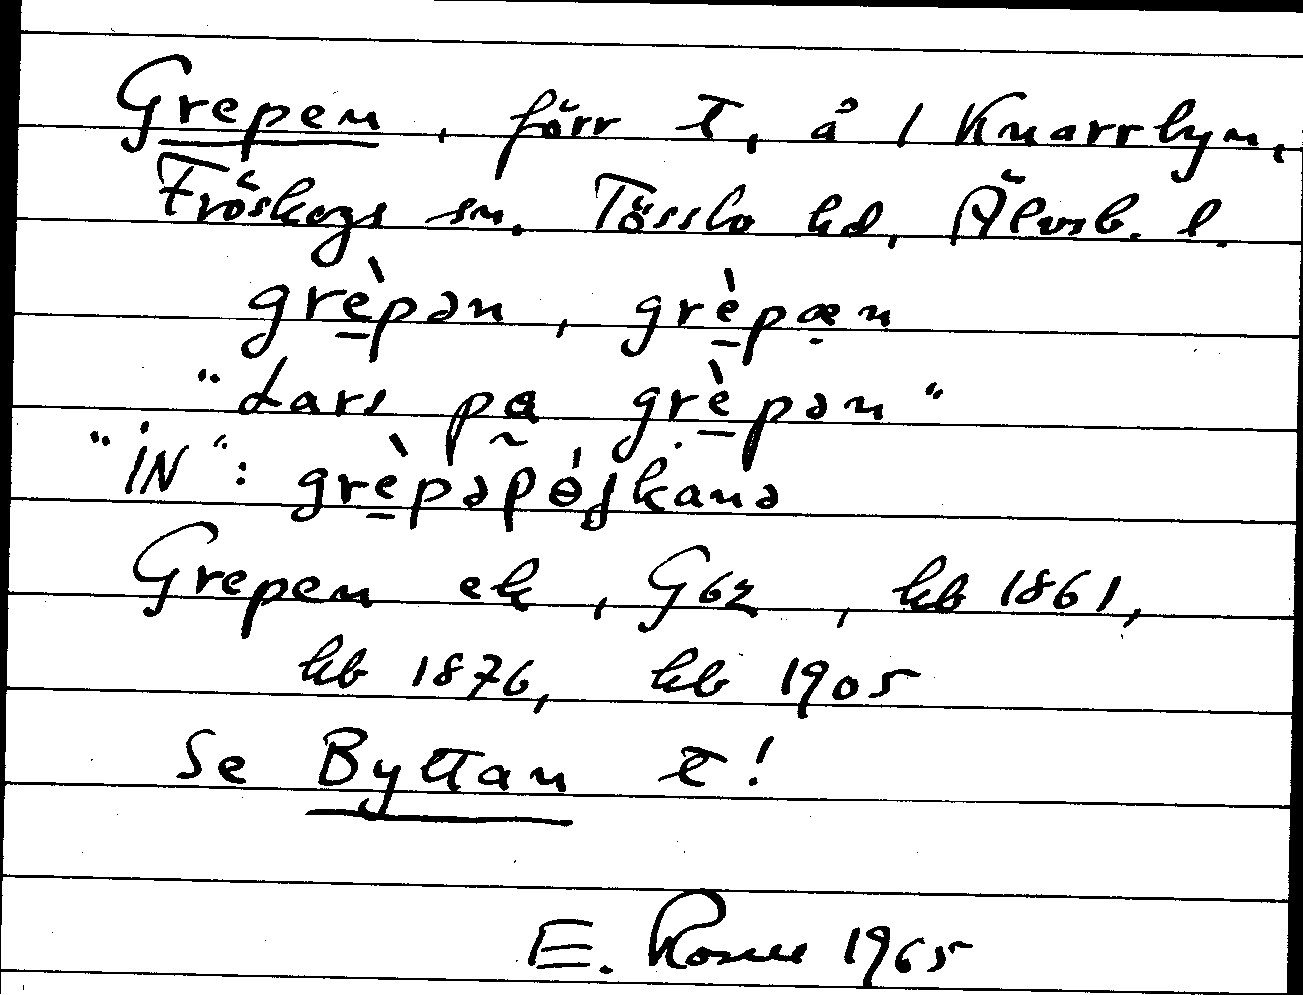 Grepen, förr t, å 1 Knarrbyn,
Fröskogs sn. Tössbo hd, Älvsb. l.
grèpən, grèpæn
"Lars pa grèpən"
"iN": grèpəpójkanə
Grepen ek, G62, hb 1861,
hb 1876, hb 1905
Se Byttan t!
E. 1965